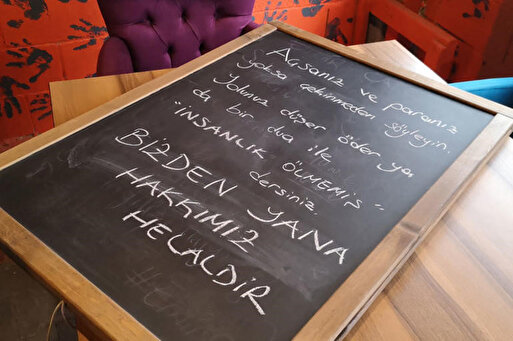 Açsanız ve paranız
yoksa çekinmeden söyleyin.
Yolunuz düşer öder ya
da bir dua ile
"İNSANLIK ÖLMEMİŞ"
dersiniz.
BİZDEN YANA
HAKKIMIZ
HELALDİR